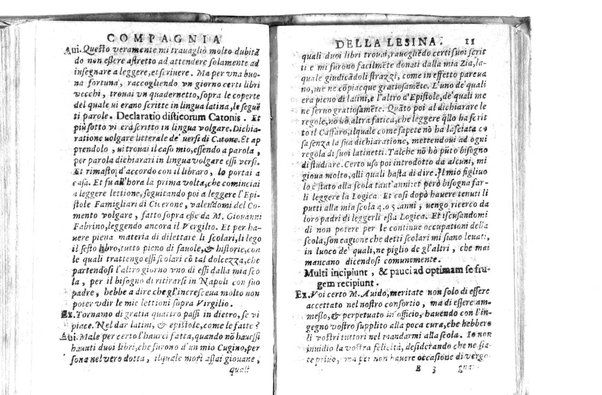 COMPAGNIA
Aui. Questo veramente mi travagliò molto dubitã
do non essere astretto ad attendere solamente ad
insegnare a leggere, et scrivere. Ma per una buo
na fortuna, raccogliendo un giorno certi libri
vecchi, trovai un quadernetto, sopra le coperte
del quale vi erano scritte in lingua latina, le segue
ti parole. Declaratio disticorum Catonis. Et
più sotto vi era scritto in lingua volgare. Dichia-
ratione volgare litterale de' versi di Catone. Et a
prendolo, vi trovai il caso mio, essendo a parola, per
parola dichiarati in lingua volgare essi versi.
Et rimasto, d'accordo con il libraro, lo portai a
casa. Et fu all'hora la prima volta, che cominciai
a leggere lettione, seguitando poi a leggere l'Epi
stole Famigliari di Cicerone, valendomi del Co-
mento volgare, fatto sopra esse da M. Giovanni
Fabrino, leggendo ancora il Vergilio. Et per dar
bene piena materia di dilettare li scolari, li lego
il festo libro, tutto pieno di favole, & historie, con
le quali trattengo essi scolari cō tal dolcezza, che
partendosi l'altro giorno uno di essi dalla mia sco
la, per il bisogno di ritirarsi in Napoli con suo
padre, hebbe a dire che gl'incresceva molto non
poter udire le mie lettioni supra Virgilio.
Ex. Torniamo di gratia quattro passi in dietro, se vi
piace. Nel dar latini, & epistole, come le fatte?
Aui. Male per certo l'haurei fatto, quando nō hauessi
hauuti duoi libri, che furono d'un mio Cugino, per
sona nel vero dotta, il quale morì assai giouane,
quali
DELLA LESINA. 11
quali duoi libri trovai, rauoglẽdo certi suoi scrit
ti e mi furono facilmẽte donati dalla mia Zia, la
quale giudicãdoli strazzi, come in effetto pareua
no, me ne cōpiacque gratiosamẽte. L'uno de' quali
era pieno di latini, e l'altro d'Epistole, de' quali me
ne seruo gratiosamẽte. Quãto poi al dichiarare le
regole, nō vi fo altra fatica, che leggere qllo ha scrit
to il Cafaro, il quale come sapete nō ha lasciata co
sa senza altra dichiaratione, mettendoui ad ogni
regola di suoi latinetti. Talche nō hò più bisogno
di studiare. Certo uso poi introdotto da alcuni, mi
gioua molto, alli quali basta di dire. Il mio figliuo
lo è stato alla scola tant'anni: et però bisogna far-
li leggere la Logica. Et così dopò hauere tenuti li
putti alla mia scola 4. o 5. anni, uengo ricerco da
loro padri di leggerli essa Logica. Et iscusandomi
di non potere per le continue occupationi della
scola, son cagione che detti scolari mi siano leuati,
in luoco de' quali, ne piglio de gl'altri, che mai
mancano dicendosi comunemente.
Multi incipiunt, & pauci ad optimam se fru
gem recipiunt.
Ex. Voi certo M. Auido, meritate non solo di essere
accettato nel nostro consortio, ma di essere am-
messo, & perpetuato in officio, hauendo con l'in
gegno vostro supplito alla poca cura, che hebbero
li vostri tutori nel mandarmi alla scola. Io non
inuidio la vostra felicità, desiderando che ne sia-
te priuo, ma per non hauere occasione di vergo
B 3 gnar